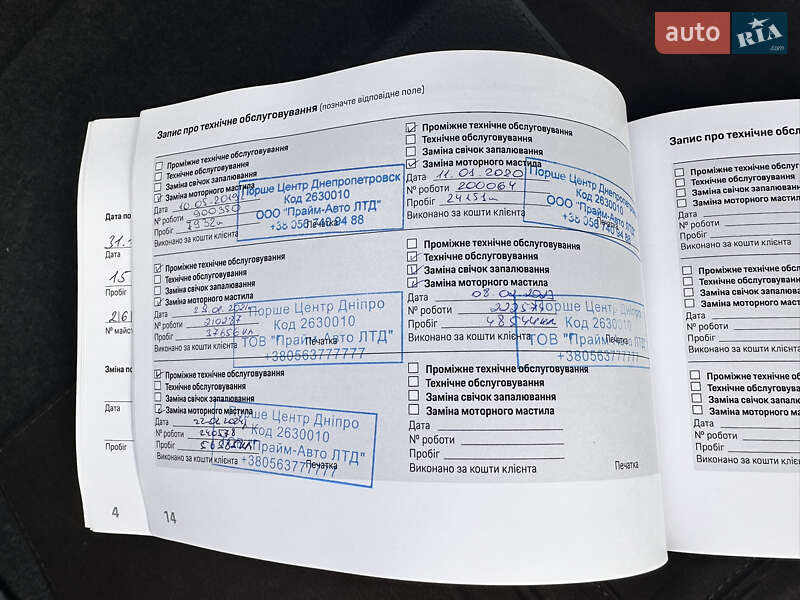 auto RIA.com
Запис про технічне обслуговування (позначте відповідне поле)
Проміжне технічне обслуговування
Технічне обслуговування
Заміна свічок запалювання
Заміна моторного мастила
Дата 10.05.2019
№ роботи
Пробіг
Виконано за кошти клієнта
Печатка
Порше Центр Днепропетровск
Код 2630010
ООО "Прайм-Авто ЛТД"
+38 056 740 94 88
Проміжне технічне обслуговування
Технічне обслуговування
Заміна свічок запалювання
Заміна моторного мастила
Дата 11.01.2020
№ роботи 200064
Пробіг
Виконано за кошти клієнта
Печатка
Порше Центр Днепропетровск
Код 2630010
ООО "Прайм-Авто ЛТД"
+38 056 740 94 88
Проміжне технічне обслуговування
Технічне обслуговування
Заміна свічок запалювання
Заміна моторного мастила
Дата
№ роботи 210287
Пробіг
Виконано за кошти клієнта
Печатка
Порше Центр Дніпро
Код 2630010
ТОВ "Прайм-Авто ЛТД"
+380563777777
Проміжне технічне обслуговування
Технічне обслуговування
Заміна свічок запалювання
Заміна моторного мастила
Дата
№ роботи
Пробіг
Виконано за кошти клієнта
Печатка
Порше Центр Дніпро
Код 2630010
ТОВ "Прайм-Авто ЛТД"
+380563777777
Проміжне технічне обслуговування
Технічне обслуговування
Заміна свічок запалювання
Заміна моторного мастила
Дата
№ роботи 240538
Пробіг
Виконано за кошти клієнта
Печатка
Порше Центр Дніпро
Код 2630010
"Прайм-Авто ЛТД"
+380563777777
Проміжне технічне обслуговування
Технічне обслуговування
Заміна свічок запалювання
Заміна моторного мастила
Дата
№ роботи
Пробіг
Виконано за кошти клієнта
Печатка
14
Дата
15
Пробіг
Дата
Пробіг
4
Запис про технічне
Проміжне технічне
Технічне обслуговування
Заміна свічок запалювання
Заміна моторного мастила
Дата
№ роботи
Пробіг
Виконано за кошти клієнта
Проміжне технічне
Технічне обслуговування
Заміна свічок запалювання
Заміна моторного мастила
Дата
№ роботи
Пробіг
Виконано за кошти клієнта
Проміжне технічне
Технічне обслуговування
Заміна свічок запалювання
Заміна моторного мастила
Дата
№ роботи
Пробіг
Виконано за кошти клієнта